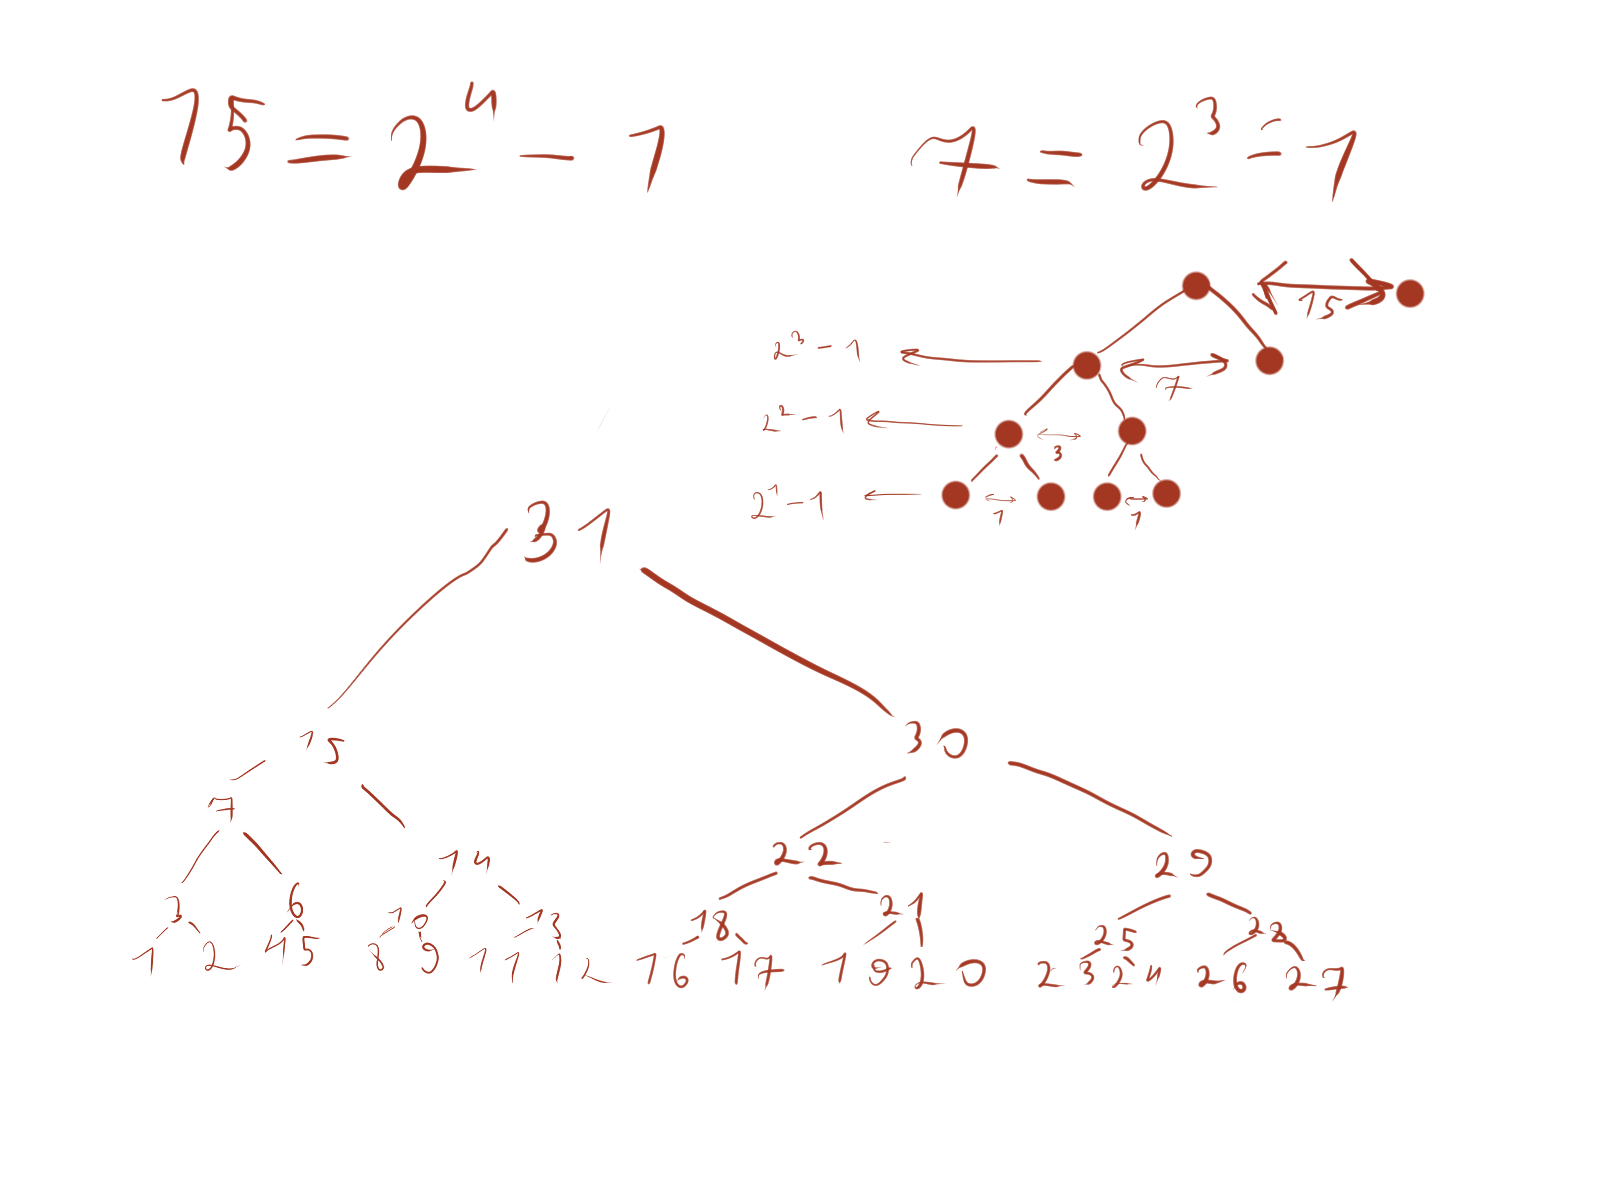 15 = 2^4 - 1
7 = 2^3 = 1
15
2^3 - 1
7
2^2 - 1
3
2^1 - 1
1 1
31
15 30
7 22 29
14
3 6 10 13 18 21 25 28
1 2 4 5 8 9 11 12 16 17 19 20 23 24 26 27